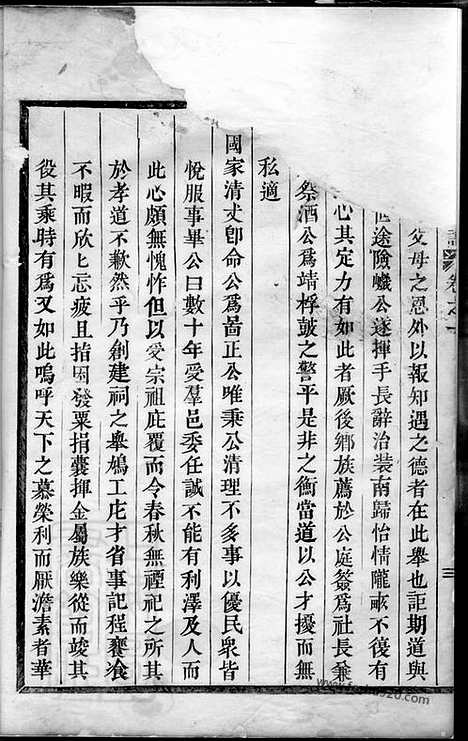 譜 卷之一
父母之恩外以報知遇之德者在此舉也詎期道與
世途險巇公遂揮手長辭治裝南歸怡情隴畝不復有
心其定力有如此者厥後鄉族薦於公庭簽爲社長兼
祭酒公爲靖桴鼓之警平是非之衡當道以公才擾而無
私適
國家清丈卽命公爲啚正公唯秉公清理不多事以優民衆皆
悅服事畢公曰數十年受羣邑委任誠不能有利澤及人而
此心頗無愧怍但以受宗祖庇覆而令春秋無禋祀之所其
於孝道不歉然乎乃創建祠之舉鳩工庀才省事記程饔飧
不暇而欣匕忘疲且指囷發粟捐囊揮金屬族樂從而竣其
役其乘時有爲又如此嗚呼天下之慕榮利而厭澹素者華